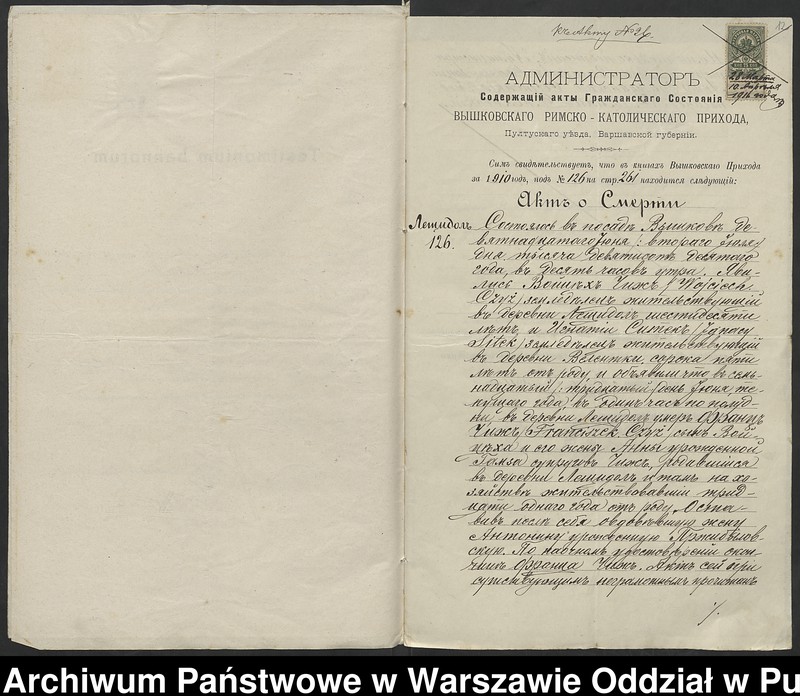 къ Акту №26.
12
28 Марта
10 Апрѣля
1916 года
АДМИНИСТРАТОРЪ
Содержащій акты Гражданскаго Состоянія
ВЫШКОВСКАГО РИМСКО-КАТОЛИЧЕСКАГО ПРИХОДА,
Пултускаго уѣзда, Варшавской губерніи.
Симъ свидѣтельствуетъ, что въ книгахъ Вышковскаго Прихода
за 1910 годъ, подъ № 126 на стр. 261 находится слѣдующій:
Актъ о Смерти
Лещидолъ
126.
Состоялось въ посадѣ Вышковѣ де-
вятнадцатаго Іюня /: втораго Іюля/
дня, тысяча девятисотъ десятаго
года, въ десять часовъ утра. Яви-
лись Войцѣхъ Чижъ /Wojciech
Czyż/ земледѣлецъ жительствующій
въ деревни Лещидолъ шестидесяти
лѣтъ, и Игнатій Ситекъ /Ignacy
Sitek/ земледѣлецъ жительствующій
въ деревни сорока пяти
лѣтъ отъ роду, и объявили что въ сем-
надцатый /: тридцатый/ день Іюня, те-
кущаго года, въ одинъ часъ по полуд-
ни, въ деревни Лещидолъ умеръ Францъ
Чижъ /Franciszek Czyż/ сынъ Вой-
цѣха и его жены Анны урожденной
Гамза супруговъ Чижъ, родившійся
въ деревни Лещидолъ и тамъ на хо-
зяйствѣ жительствовавшій трид-
цати одного года отъ роду. Оста-
вивъ послѣ себя овдовѣвшую жену
Антонину урожденную Пржибылов-
скую. По наочномъ удостовѣреніи о кон-
чинѣ Франца Чижъ. Актъ сей при-
сутствующимъ неграмотнымъ прочитанъ
./.
Archiwum Państwowe w Warszawie Oddział w Pu